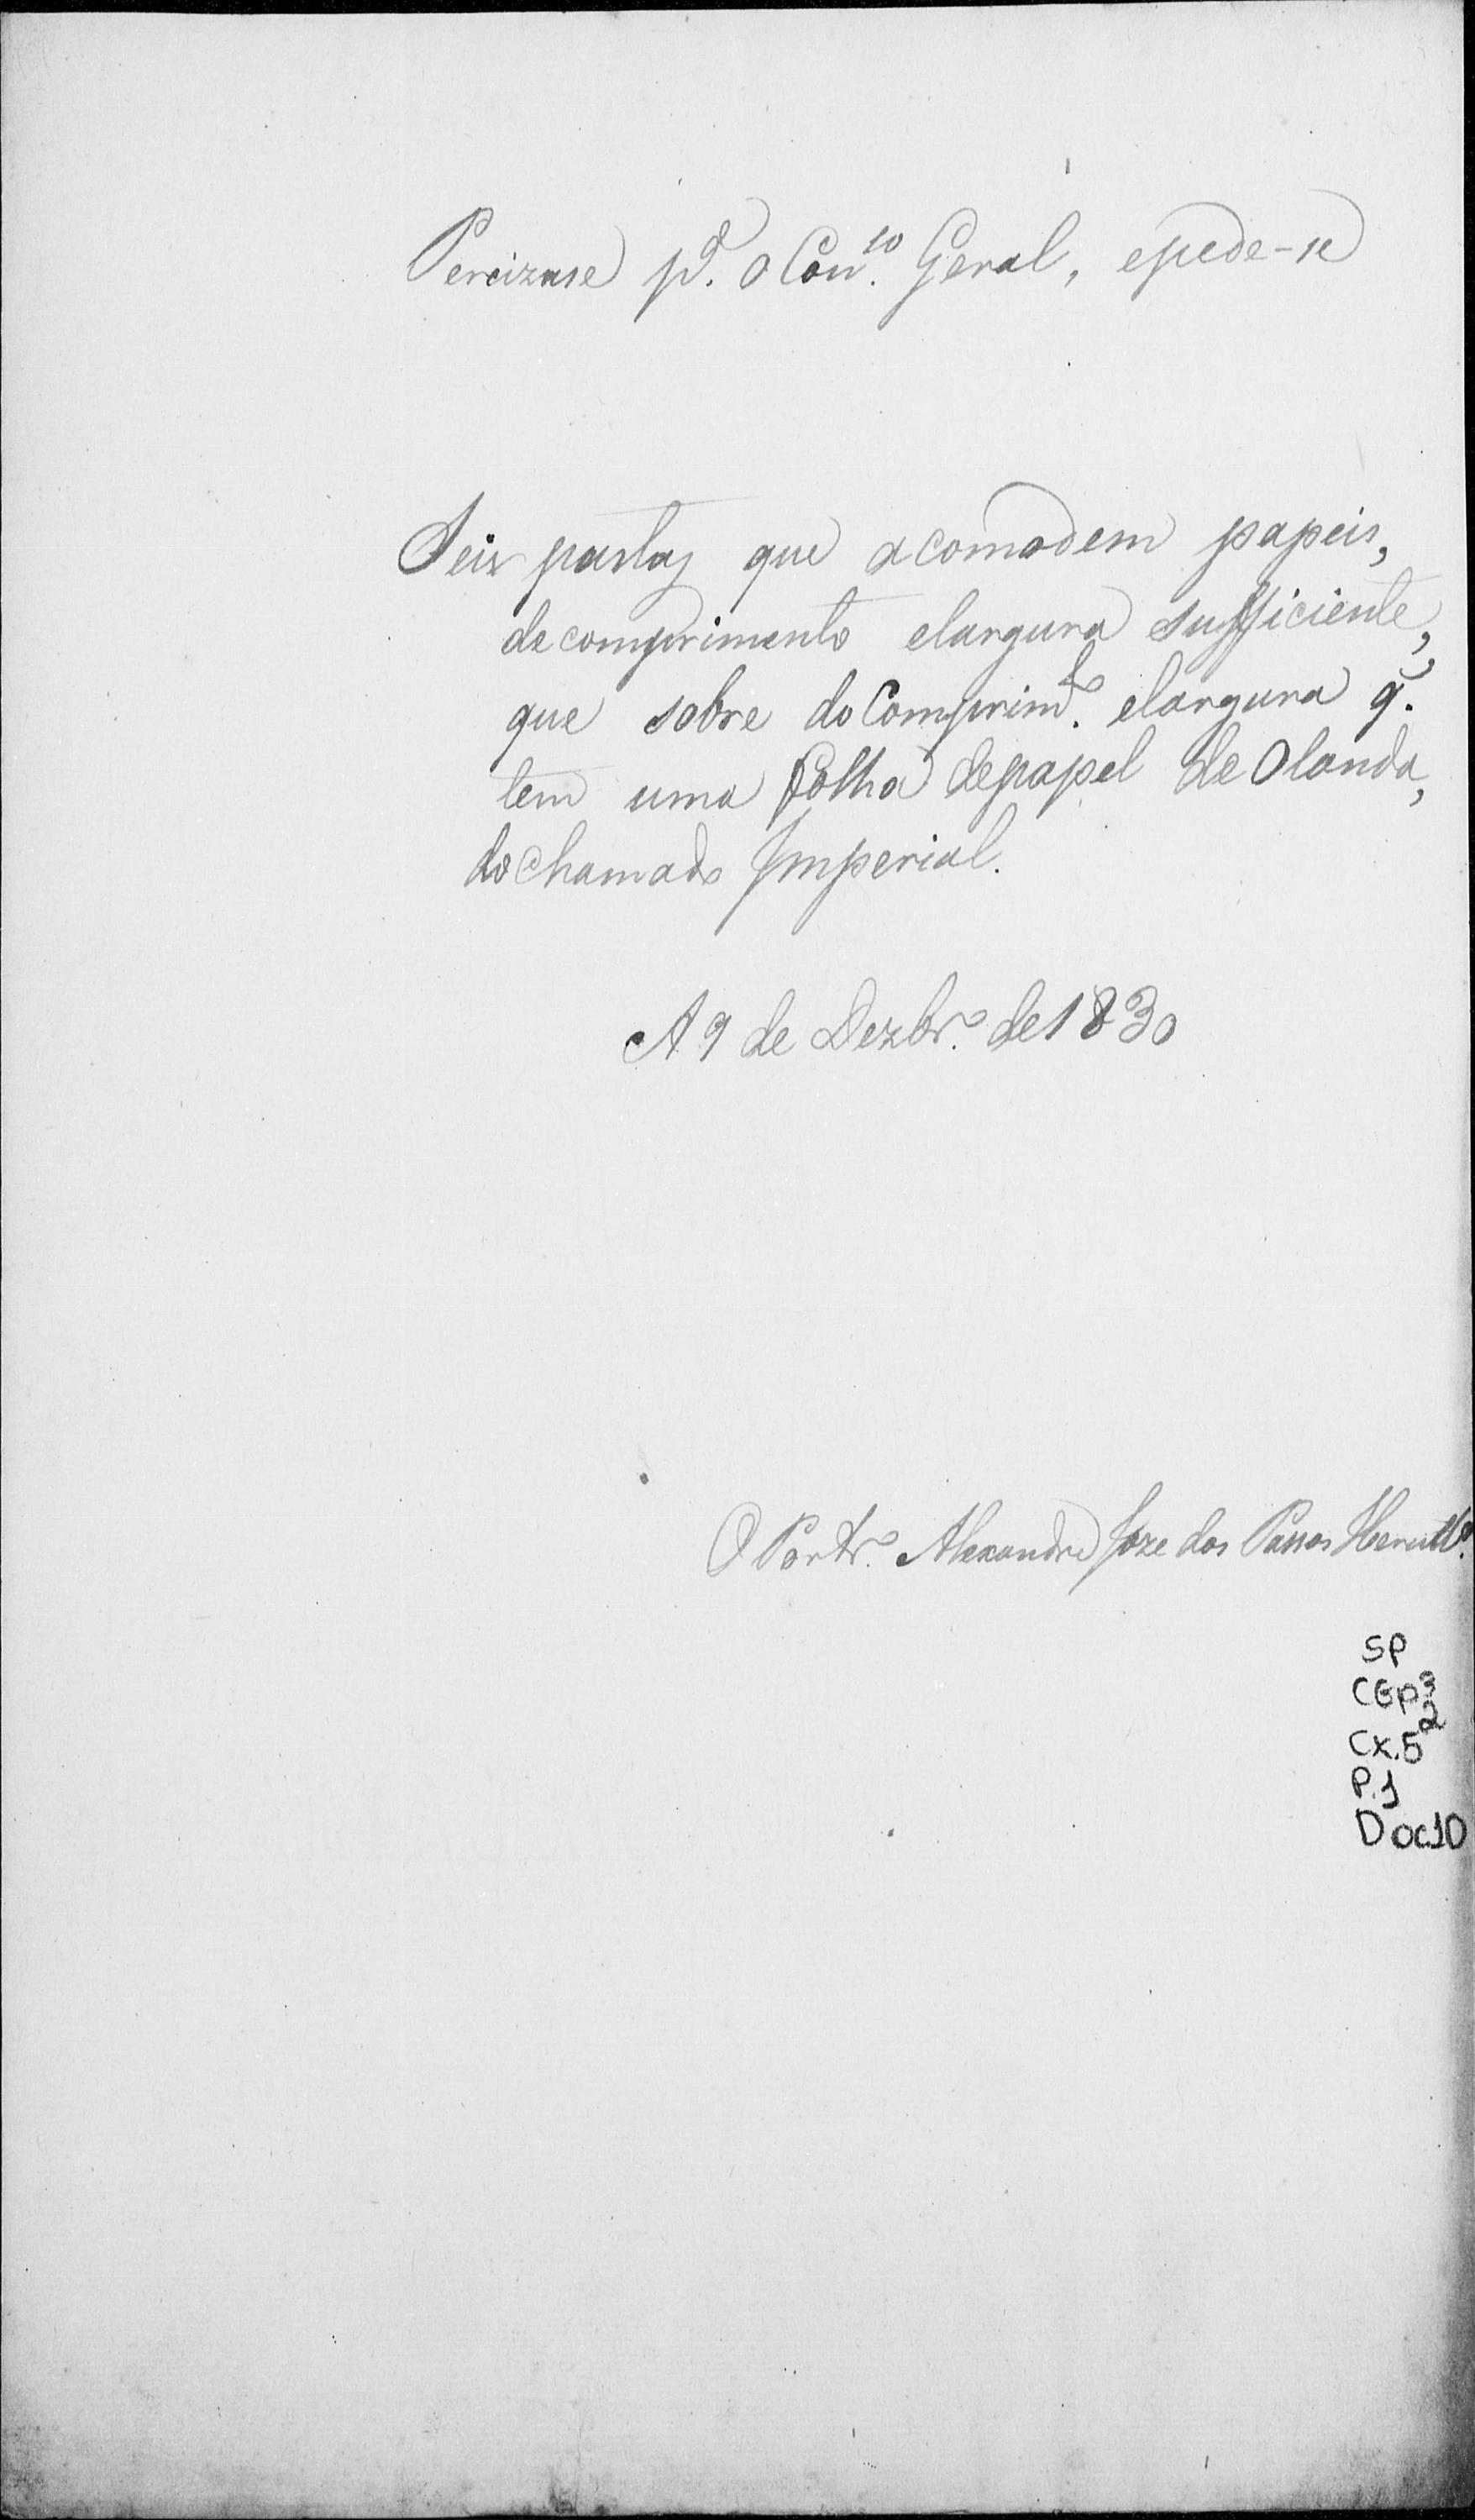 Percizase p.ª o Con.so Geral, epede-se
Seis pastas que acomodem papeis,
de comprimento elargura sufficiente,
que sobre do Comprim.to elargura q̃.
tem uma folha depapel de Olanda,
do chamado Imperial.
A 9 de Dezbr.º de 1830
O Portr.º Alexandre Joze dos Passos
SP
CGP3
Cx.52
P.1
Doc10